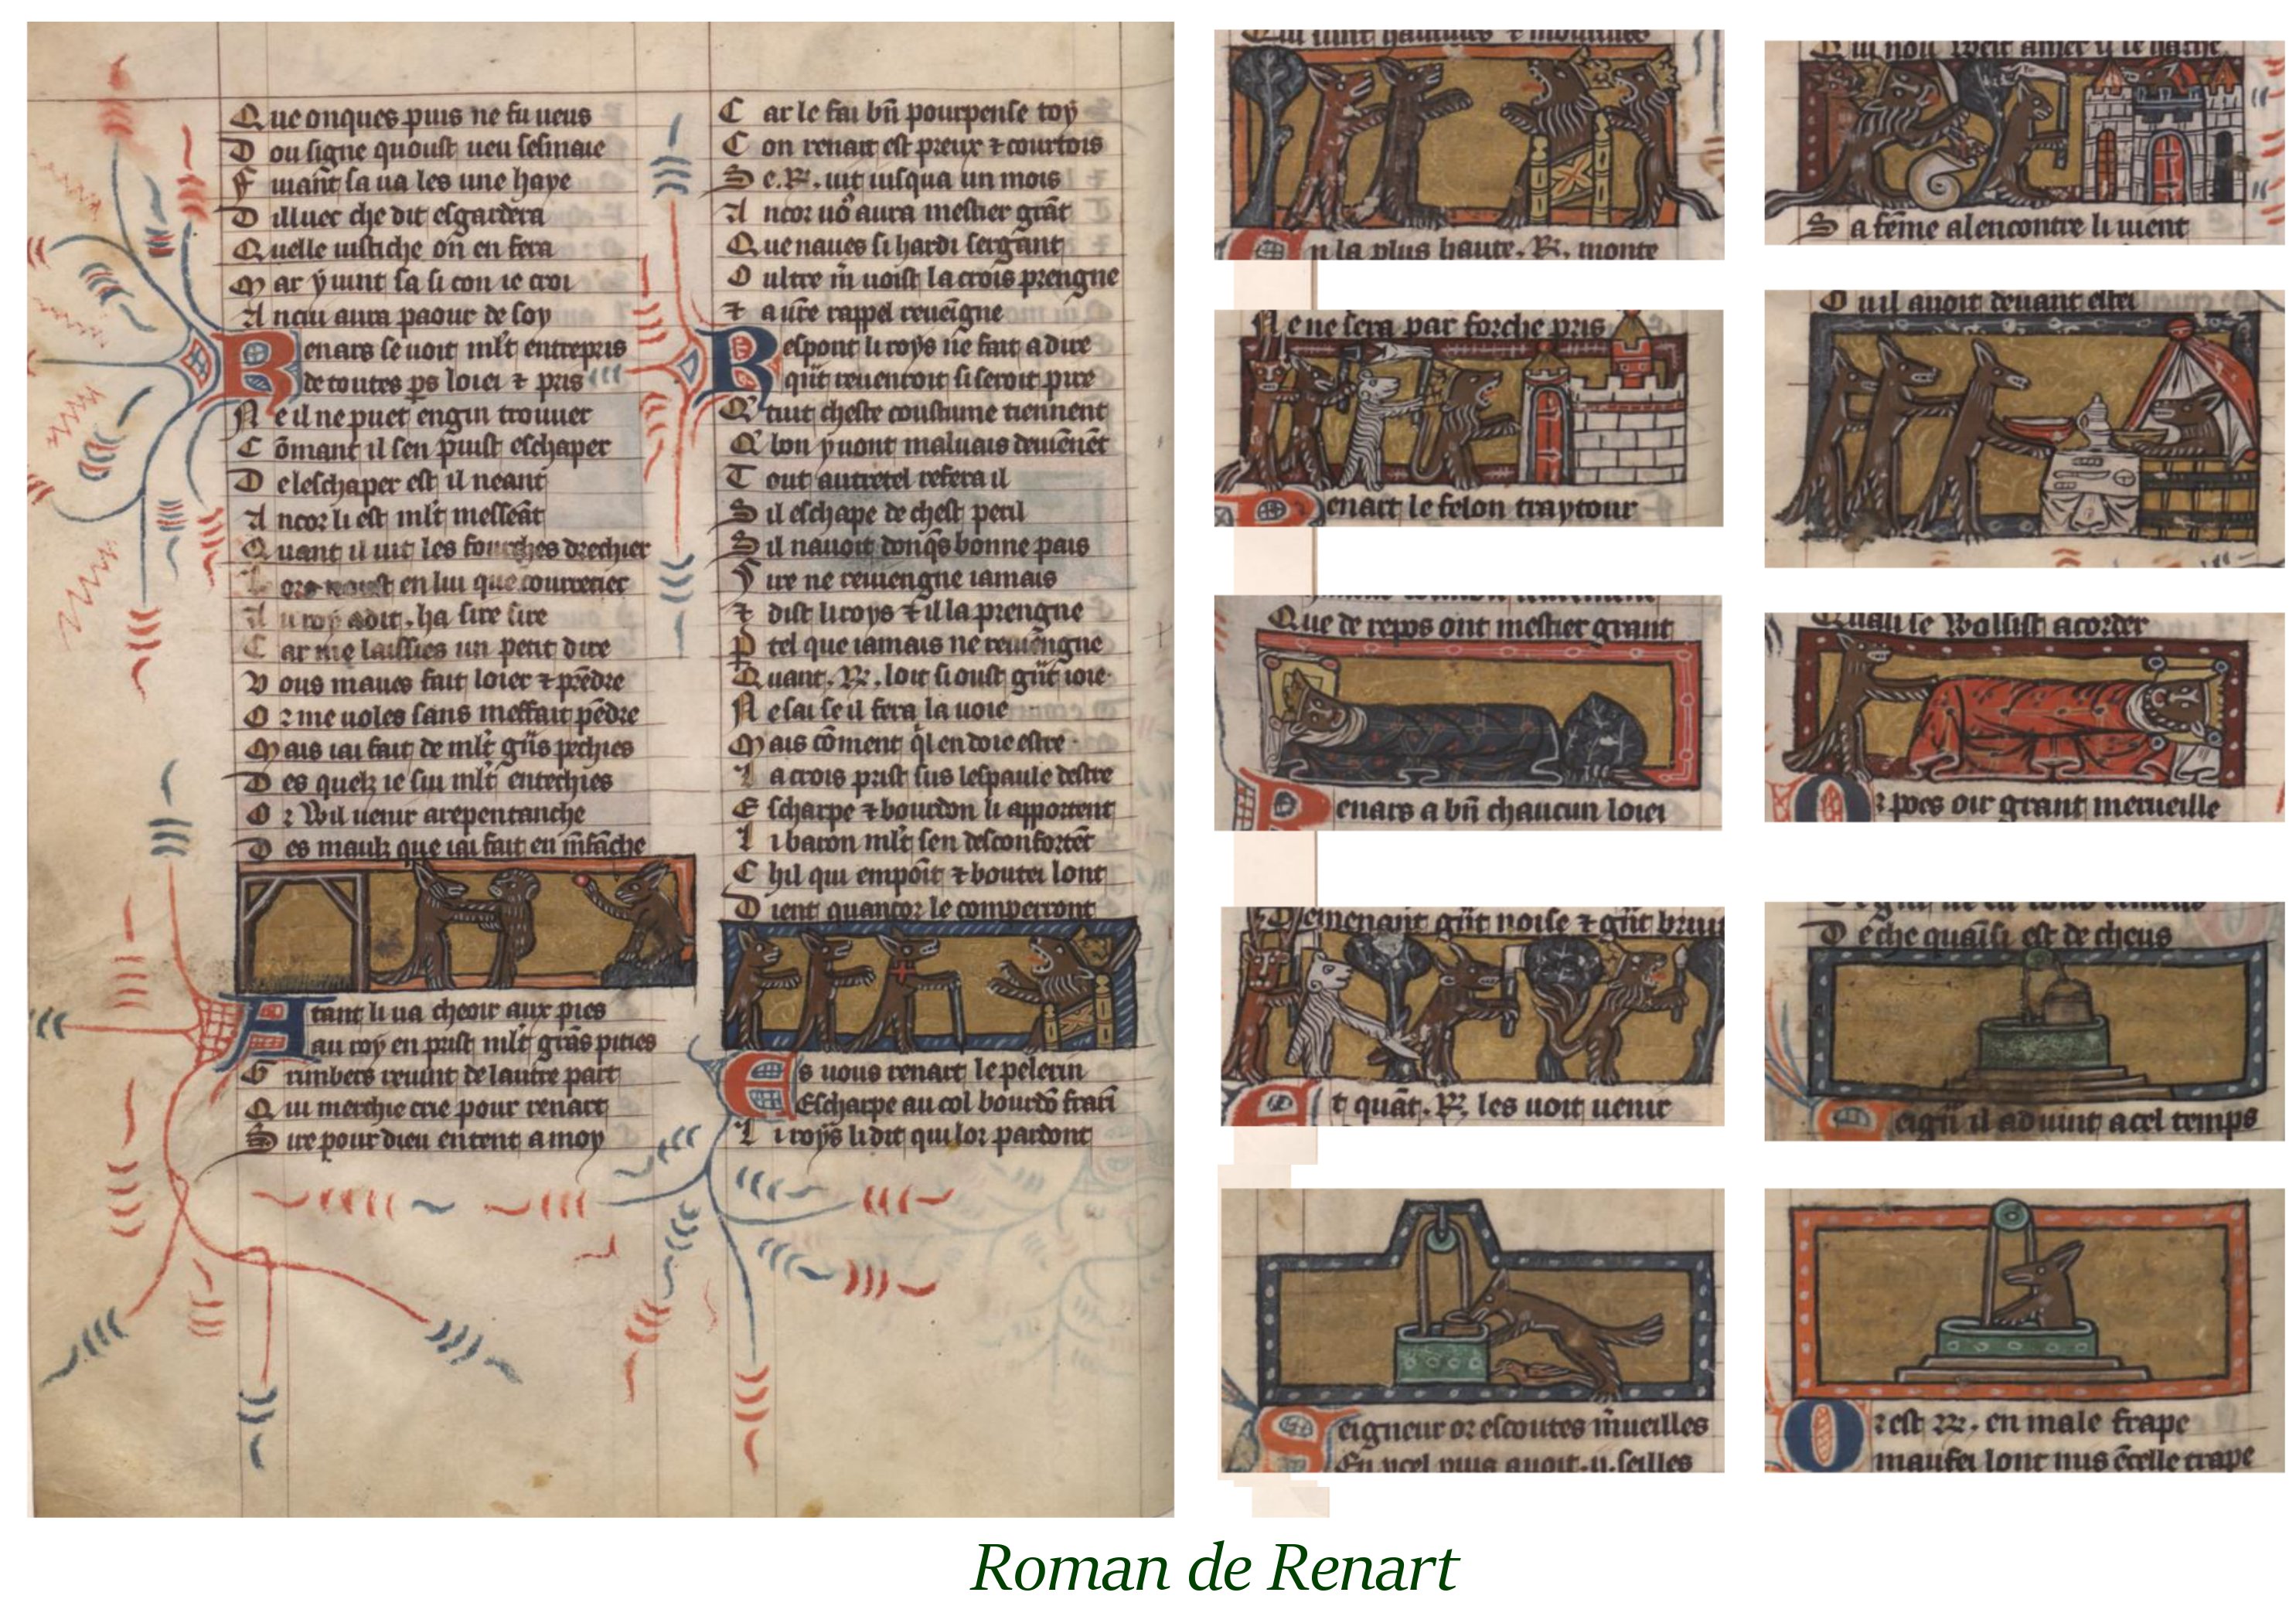 Que onques puis ne fu ueus
Dou signe quoust ueu
Fuiant sa ua les une haye
Dilluec che dit esgardera
Quelle iustiche on en fera
Mar y uint sa si con ie croi
Ancui aura paour de soy
Renars se uoit mlt entrepris
de toutes ps loiei & pris
Ne il ne puet engin trouuer
Cōmant il sen puist eschaper
De leschaper est il neant
Ancor li est mlt messeāt
Quant il uit les fourches drechier
en lui que courrecier
Au roy adit, ha sire sire
Car me laissies un petit dire
Vous maues fait loier & prēdre
Or me uoles sans meffait pēdre
Mais iai fait de mlt grās pechies
Des quelz ie sui mlt entechies
Or Wil uenir arepentanche
Des maulz que iai fait en mfāche
Atant li ua cheoir aux pies
au roy en prist mlt grās pities
Grimbers reuint de lautre part
Qui merchie crie pour renart
Sire pour dieu entent amoy
Car le fai bn̄ pourpense toy
Con renart est preux & courtois
Se .R. uit iusqua un mois
Ancor uo aura mestier grāt
Que naues si hardi sergant
Oultre m̄ uoist la crois prengne
& a ur̄e rappel reueigne
Respont li roys ne fait a dire
qūt reuenroit si seroit pire
Q' tuit cheste coustume tiennent
Q' bon y uont maluais deuiēnēt
Tout autretel refera il
Sil eschape de chest peril
Sil nauoit donqs bonne pais
Sire ne reuiengne iamais
& dist li roys & il la prengne
P tel que iamais ne reuiēngne
Quant .R. loit si oust grāt ioie
Ne sai se il fera la uoie
Mais cōment ql en doie estre
La crois prist sus lespaule destre
Escharpe & bourdon li apportent
Li baron mlt sen desconfortēt
Chil qui empoīt & boutei lont
Dient quancor le comperront
Es uous renart le pelerin
Escharpe au col bourdō
Li roys li dit qui lor pardont
En la plus haute .R. monte
Ne ne sera par forche pris
Renart le felon traytour
Que de repos ont mestier grant
Renars a bn̄ chaucun loiei
Demenant grāt noise & grāt bruit
Et quāt .R. les uoit uenir
Seigneur or escoutes m̄ueilles
En ycel puis auoit .ii. seilles
Sa fēme alencontre li uient
Quil auoit deuant
se Wolsist acorder
Or poes oir grant merueille
De che quainsi est de cheus
il aduint a cel temps
Or est .R. en male frape
maufei lont mis ēcelle trape
Roman de Renart